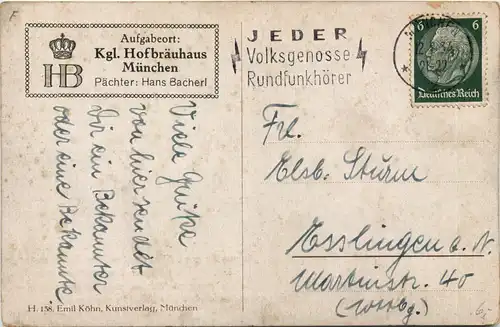 Aufgabeort:
Kgl. Hofbräuhaus
München
Pächter: Hans Bacherl
HB
JEDER
Volksgenosse
Rundfunkhörer
6 6
Deutsches Reich
Viele Grüße
von hier sendet
Dir ein Bekannter
oder eine Bekannte
Frl.
Elsb. Sturm
Esslingen a. N.
Martinstr. 40
(Wttbg.)
H. 158. Emil Köhn, Kunstverlag, München